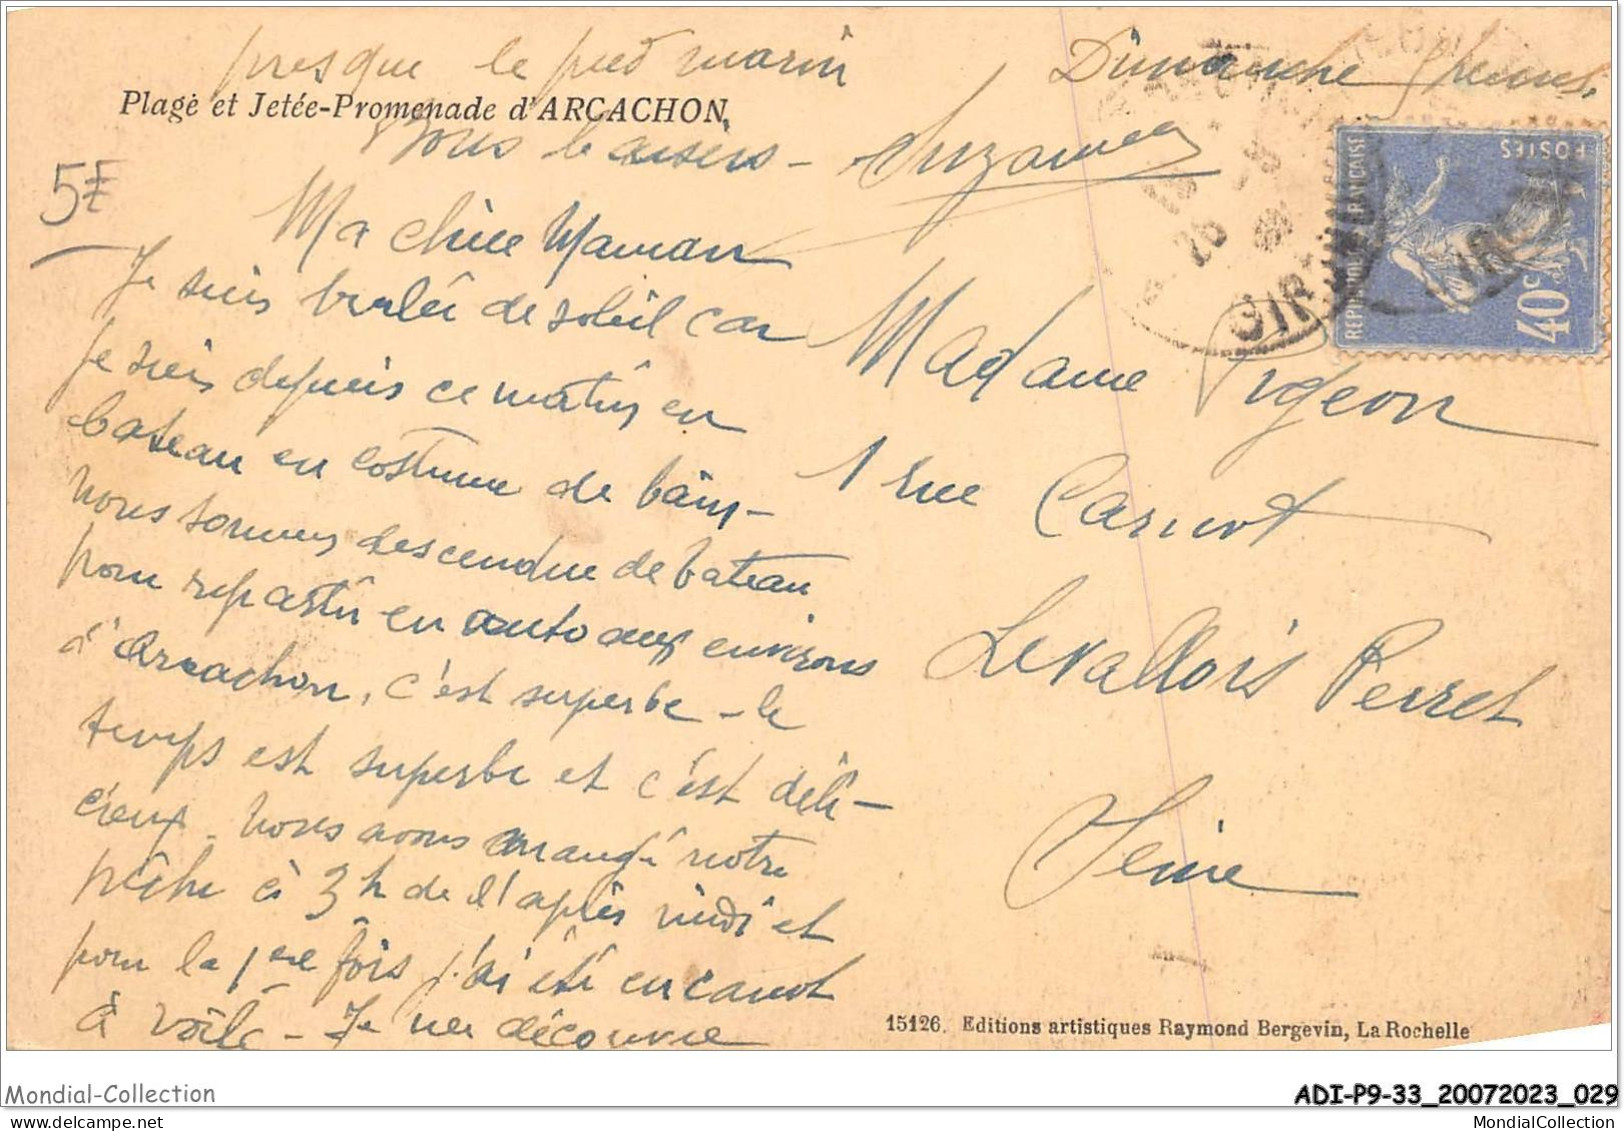 presque le pied marin
Dimanche 9 heures.
Plage et Jetée-Promenade d'ARCACHON
Bons baisers - Suzanne
5F
Ma chère Maman
Je suis brulée de soleil car
je suis depuis ce matin en
bateau en costume de bain -
nous sommes descendue de bateau
pour repartir en auto aux environs
d'Arcachon, c'est superbe - le
temps est superbe et c'est déli-
cieux. Nous avons mangé notre
pêche à 3 h de l'après midi et
pour la 1ere fois j'ai été en canot
à voile - Je me découvre
Madame Pigeon
1 rue Carnot
Levallois Perret
Seine
POSTES
REPUBLIQUE FRANÇAISE
40c
26
GIR
15126. Editions artistiques Raymond Bergevin, La Rochelle
Mondial-Collection
ADI-P9-33_20072023_029
MondialCollection